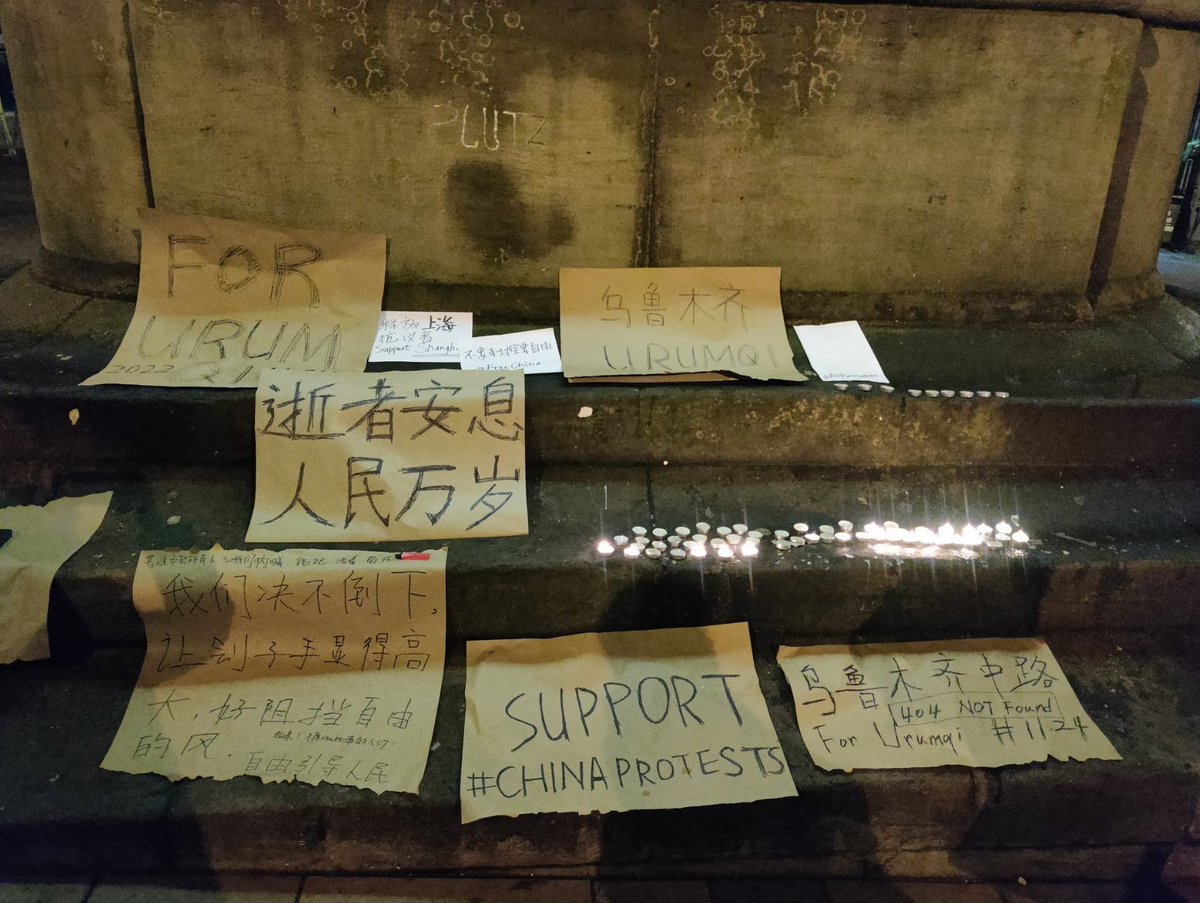 PLUTZ
FOR
URUM
QI
2022
解放上海
抗议者
Support Shangh
不要封控要自由
@FreeChina
乌鲁木齐
URUMQI
逝者安息
人民万岁
我们决不倒下,
让刽子手显得高
大,好阻挡自由
的风.
自由引导人民
SUPPORT
#CHINAPROTESTS
乌鲁木齐中路
404 NOT Found
For Urumqi #11.24